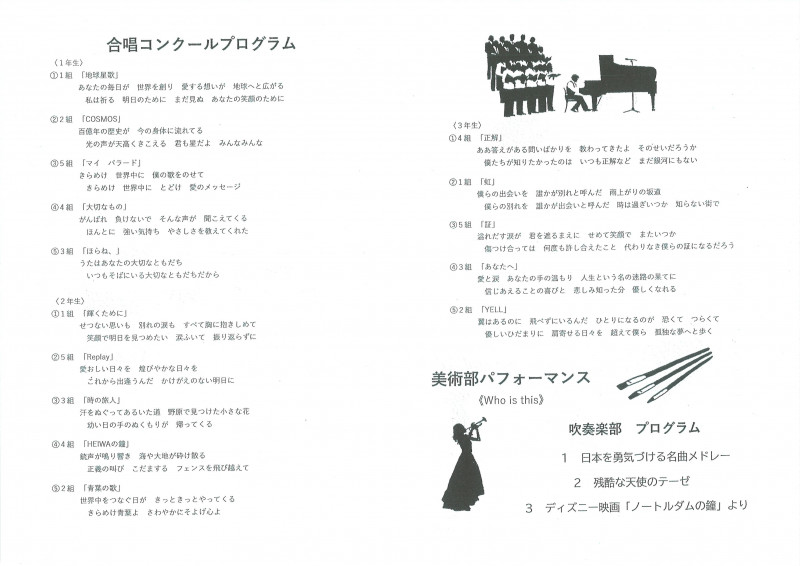 合唱コンクールプログラム
（1年生）
①1組 「地球星歌」
あなたの毎日が 世界を創り 愛する想いが 地球へと広がる
私は祈る 明日のために まだ見ぬ あなたの笑顔のために
②2組 「COSMOS」
百億年の歴史が 今の身体に流れてる
光の声が天高くきこえる 君も星だよ みんなみんな
③5組 「マイ バラード」
きらめけ 世界中に 僕の歌をのせて
きらめけ 世界中に とどけ 愛のメッセージ
④4組 「大切なもの」
がんばれ 負けないで そんな声が 聞こえてくる
ほんとに 強い気持ち やさしさを教えてくれた
⑤3組 「ほらね、」
うたはあなたの大切なともだち
いつもそばにいる大切なともだちだから
（2年生）
①1組 「輝くために」
せつない思いも 別れの涙も すべて胸に抱きしめて
笑顔で明日を見つめたい 涙ふいて 振り返らずに
②5組 「Replay」
愛おしい日々を 煌びやかな日々を
これから出逢うんだ かけがえのない明日に
③3組 「時の旅人」
汗をぬぐってあるいた道 野原で見つけた小さな花
幼い日の手のぬくもりが 帰ってくる
④4組 「HEIWAの鐘」
銃声が鳴り響き 海や大地が砕け散る
正義の叫び こだまする フェンスを飛び越えて
⑤2組 「青葉の歌」
世界中をつなぐ日が きっときっとやってくる
きらめけ青葉よ さわやかにそよげ心よ
（3年生）
①4組 「正解」
ああ答えがある問いばかりを 教わってきたよ そのせいだろうか
僕たちが知りたかったのは いつも正解など まだ銀河にもない
②1組 「虹」
僕らの出会いを 誰かが別れと呼んだ 雨上がりの坂道
僕らの別れを 誰かが出会いと呼んだ 時は過ぎいつか 知らない街で
③5組 「証」
溢れだす涙が 君を遮るまえに せめて笑顔で またいつか
傷つけ合っては 何度も許し合えたこと 代わりなき僕らの証になるだろう
④3組 「あなたへ」
愛と涙 あなたの手の温もり 人生という名の迷路の果てに
信じあえることの喜びと 悲しみ知った分 優しくなれる
⑤2組 「YELL」
翼はあるのに 飛べずにいるんだ ひとりになるのが 恐くて つらくて
優しいひだまりに 肩寄せる日々を 超えて僕ら 孤独な夢へと歩く
美術部パフォーマンス
《Who is this》
吹奏楽部 プログラム
1 日本を勇気づける名曲メドレー
2 残酷な天使のテーゼ
3 ディズニー映画「ノートルダムの鐘」より